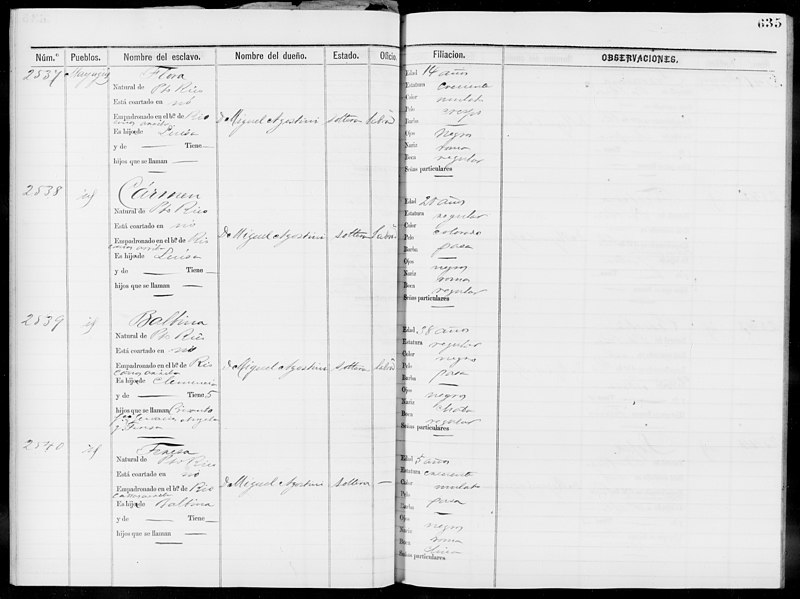 635
Núm.º Pueblos. Nombre del esclavo. Nombre del dueño. Estado. Oficio. Filiacion. OBSERVACIONES.
2537 Mayagüez Flora
Natural de Pto Rico
Está coartado en no
Empadronado en el bº de Rio
cañas arriba
Es hijo de Luisa
y de — Tiene —
hijos que se llaman —
D Miguel Agostini soltera Labrª
Edad 14 años
Estatura creciente
Color mulato
Pelo crespo
Barba —
Ojos negros
Nariz roma
Boca regular
Señas particulares —
2538 id Cármen
Natural de Pto Rico
Está coartado en no
Empadronado en el bº de Rio
cañas arriba
Es hijo de Luisa
y de — Tiene —
hijos que se llaman —
D Miguel Agostini soltera Labrª
Edad 20 años
Estatura regular
Color colorado
Pelo pasa
Barba —
Ojos negros
Nariz roma
Boca regular
Señas particulares —
2539 id Balbina
Natural de Pto Rico
Está coartado en no
Empadronado en el bº de Rio
cañas arriba
Es hijo de Clemencia
y de — Tiene 5
hijos que se llaman
y Teresa
D Miguel Agostini soltera Labrª
Edad 38 años
Estatura regular
Color negro
Pelo pasa
Barba —
Ojos negros
Nariz chata
Boca regular
Señas particulares —
2540 id
Natural de Pto Rico
Está coartado en no
Empadronado en el bº de Rio
cañas arriba
Es hijo de Balbina
y de — Tiene —
hijos que se llaman —
D Miguel Agostini soltera —
Edad 5 años
Estatura creciente
Color mulato
Pelo pasa
Barba —
Ojos negros
Nariz roma
Boca
Señas particulares